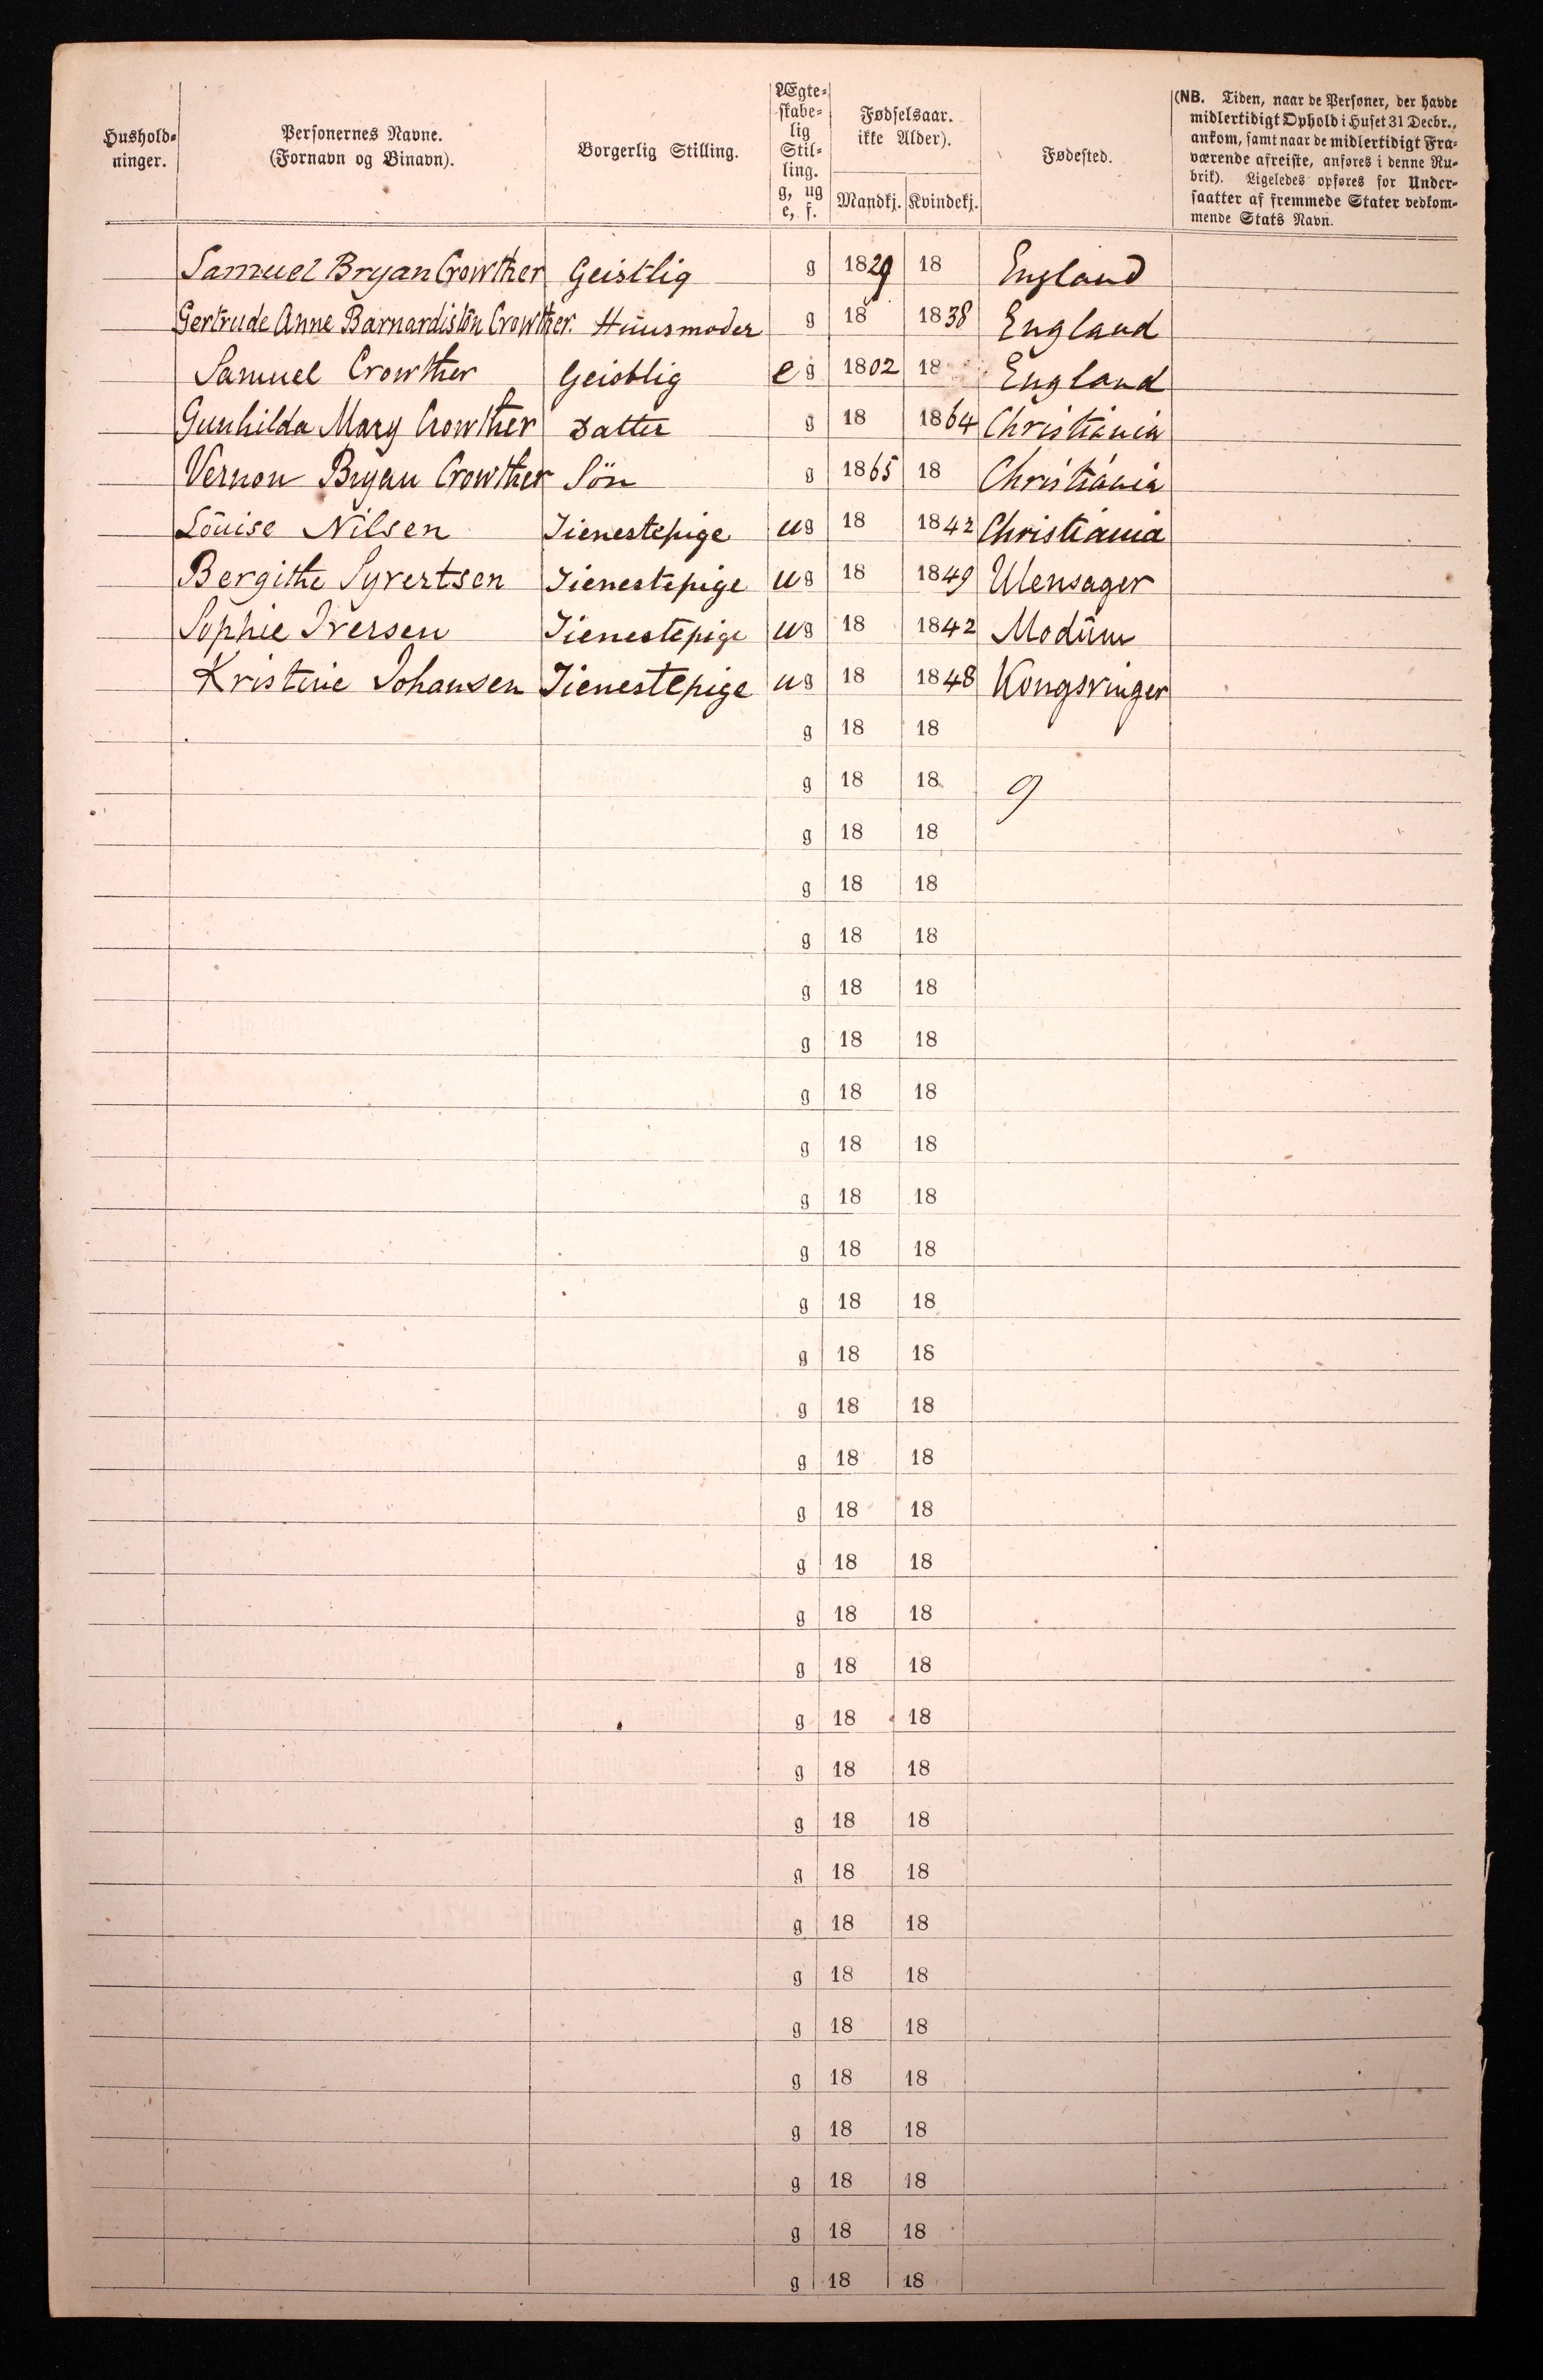 Hushold-
ninger.
Personernes Navne.
(Fornavn og Binavn).
Borgerlig Stilling.
Ægte-
skabe-
lig
Stil-
ling.
g, ug
e, f.
Fødselsaar.
ikke Alder).
Mandkj. Kvindekj.
Fødested.
(NB. Tiden, naar de Personer, der havde
midlertidigt Ophold i Huset 31 Decbr.,
ankom, samt naar de midlertidigt Fra-
værende afreiste, anføres i denne Ru-
brik). Ligeledes opføres for Under-
saatter af fremmede Stater vedkom-
mende Stats Navn.
Samuel Bryan Crowther Geistlig g 1829 18 England
Gertrude Anne Barnardiston Crowther Huusmoder g 18 1838 England
Samuel Crowther Geistlig e g 1802 18 England
Gunhilda Mary Crowther Datter g 18 1864 Christiania
Vernon Bryan Crowther Sön g 1865 18 Christiania
Louise Nilsen Tienestepige ug 18 1842 Christiania
Bergithe Syvertsen Tienestepige ug 18 1849 Ulensager
Sophie Iversen Tienestepige ug 18 1842 Modum
Kristine Johansen Tienestepige ug 18 1848 Kongsvinger
g 18 18
g 18 18 9
g 18 18
g 18 18
g 18 18
g 18 18
g 18 18
g 18 18
g 18 18
g 18 18
g 18 18
g 18 18
g 18 18
g 18 18
g 18 18
g 18 18
g 18 18
g 18 18
g 18 18
g 18 18
g 18 18
g 18 18
g 18 18
g 18 18
g 18 18
g 18 18
g 18 18
g 18 18
g 18 18
g 18 18
g 18 18